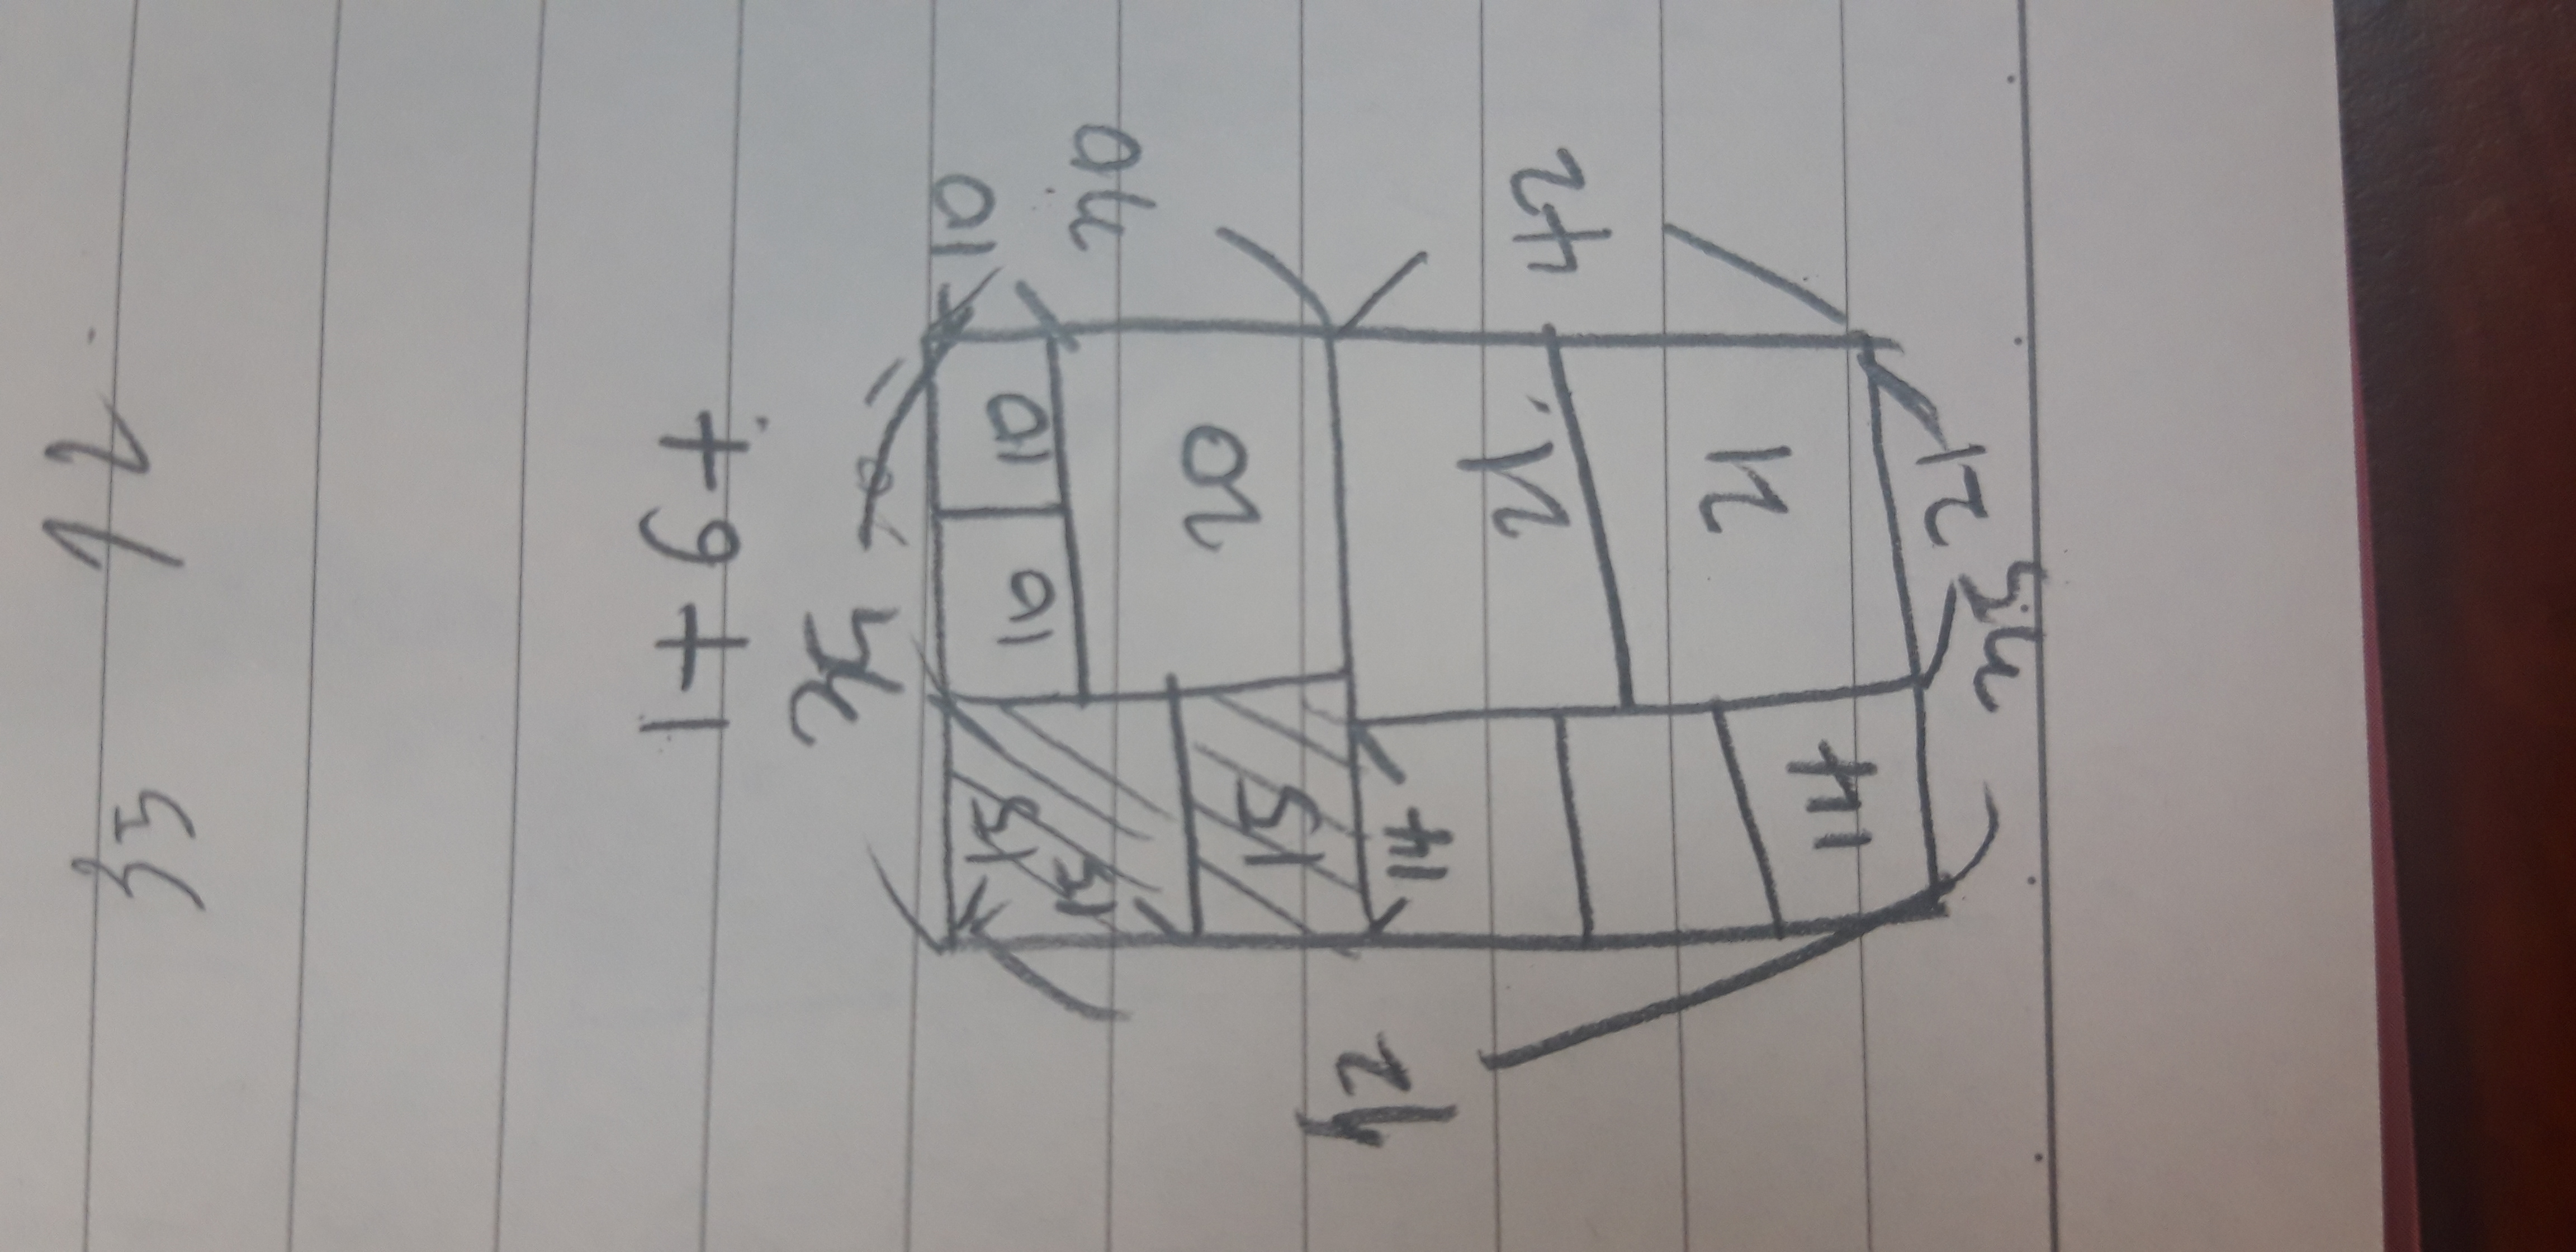 35 72
1+6+
35
15 10 10 10
15
30
20
15
72
14
21.
42
21
14
21
35